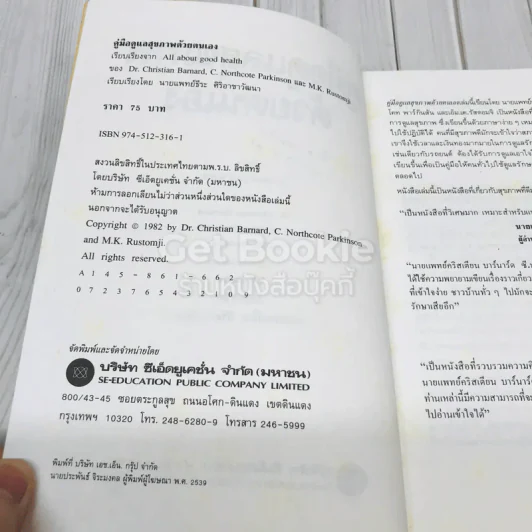 คู่มือดูแลสุขภาพด้วยตนเอง
เรียบเรียงจาก All about good health
ของ Dr. Christian Barnard, C. Northcote Parkinson และ M.K. Rustomji.
เรียบเรียงโดย นายแพทย์ธีระ ศิริอาชาวัฒนา
ราคา 75 บาท
ISBN 974-512-316-1
สงวนลิขสิทธิ์ในประเทศไทยตามพ.ร.บ. ลิขสิทธิ์
โดยบริษัท ซีเอ็ดยูเคชั่น จำกัด (มหาชน)
ห้ามการลอกเลียนไม่ว่าส่วนหนึ่งส่วนใดของหนังสือเล่มนี้
นอกจากจะได้รับอนุญาต
Copyright © 1982 by Dr. Christian Barnard, C. Northcote Parkinson
and M.K. Rustomji.
All rights reserved.
A 1 4 5 - 8 6 1 - 6 6 2
0 7 2 3 7 6 5 4 3 2 1 0 9
Get Bookie
ร้านหนังสือบุ๊คกี้
จัดพิมพ์และจัดจำหน่ายโดย
บริษัท ซีเอ็ดยูเคชั่น จำกัด (มหาชน)
SE-EDUCATION PUBLIC COMPANY LIMITED
800/43-45 ซอยตระกูลสุข ถนนอโศก-ดินแดง เขตดินแดง
กรุงเทพฯ 10320 โทร. 248-6280-9 โทรสาร 246-5999
พิมพ์ที่ บริษัท เอช.เอ็น. กรุ๊ป จำกัด
นายประพันธ์ จิระมงคล ผู้พิมพ์ผู้โฆษณา พ.ศ. 2539
คู่มือดูแลสุขภาพด้วยตนเองเล่มนี้เขียนโดย นายแพทย์
โคท พาร์กินสัน และเอ็มเค.รัสตอมจิ เป็นหนังสือที่
การดูแลสุขภาพ ซึ่งเขียนขึ้นด้วยภาษาง่าย ๆ
ไปใช้ปฏิบัติได้ คนที่มีสุขภาพดีมักจะเข้าใจว่า
เขาจึงใช้เวลาและเงินทองมากมายในการดูแลรักษา
เช่นเดียวกับรถยนต์ ต้องได้รับการดูแลเอาใจ
เขียนขึ้นเพื่อเป็นคู่มือให้คนทั่วไปใช้ดูแลรักษา
ตลอดไป
หนังสือเล่มนี้เป็นหนังสือที่เกี่ยวกับสุขภาพที่ดี
"เป็นหนังสือที่วิเศษมาก เหมาะสำหรับ
"นายแพทย์คริสเตียน บาร์นาร์ด ซี.
ได้ใช้ความพยายามเขียนเรื่องราวเกี่ยว
ที่เข้าใจง่าย ชาวบ้านทั่ว ๆ ไปมักจะ
รักษาเสียอีก"
"เป็นหนังสือที่รวบรวมความ
นายแพทย์คริสเตียน บาร์นาร์ด
ท่านเหล่านี้มีความสามารถที่จะ
ไปอ่านเข้าใจได้"